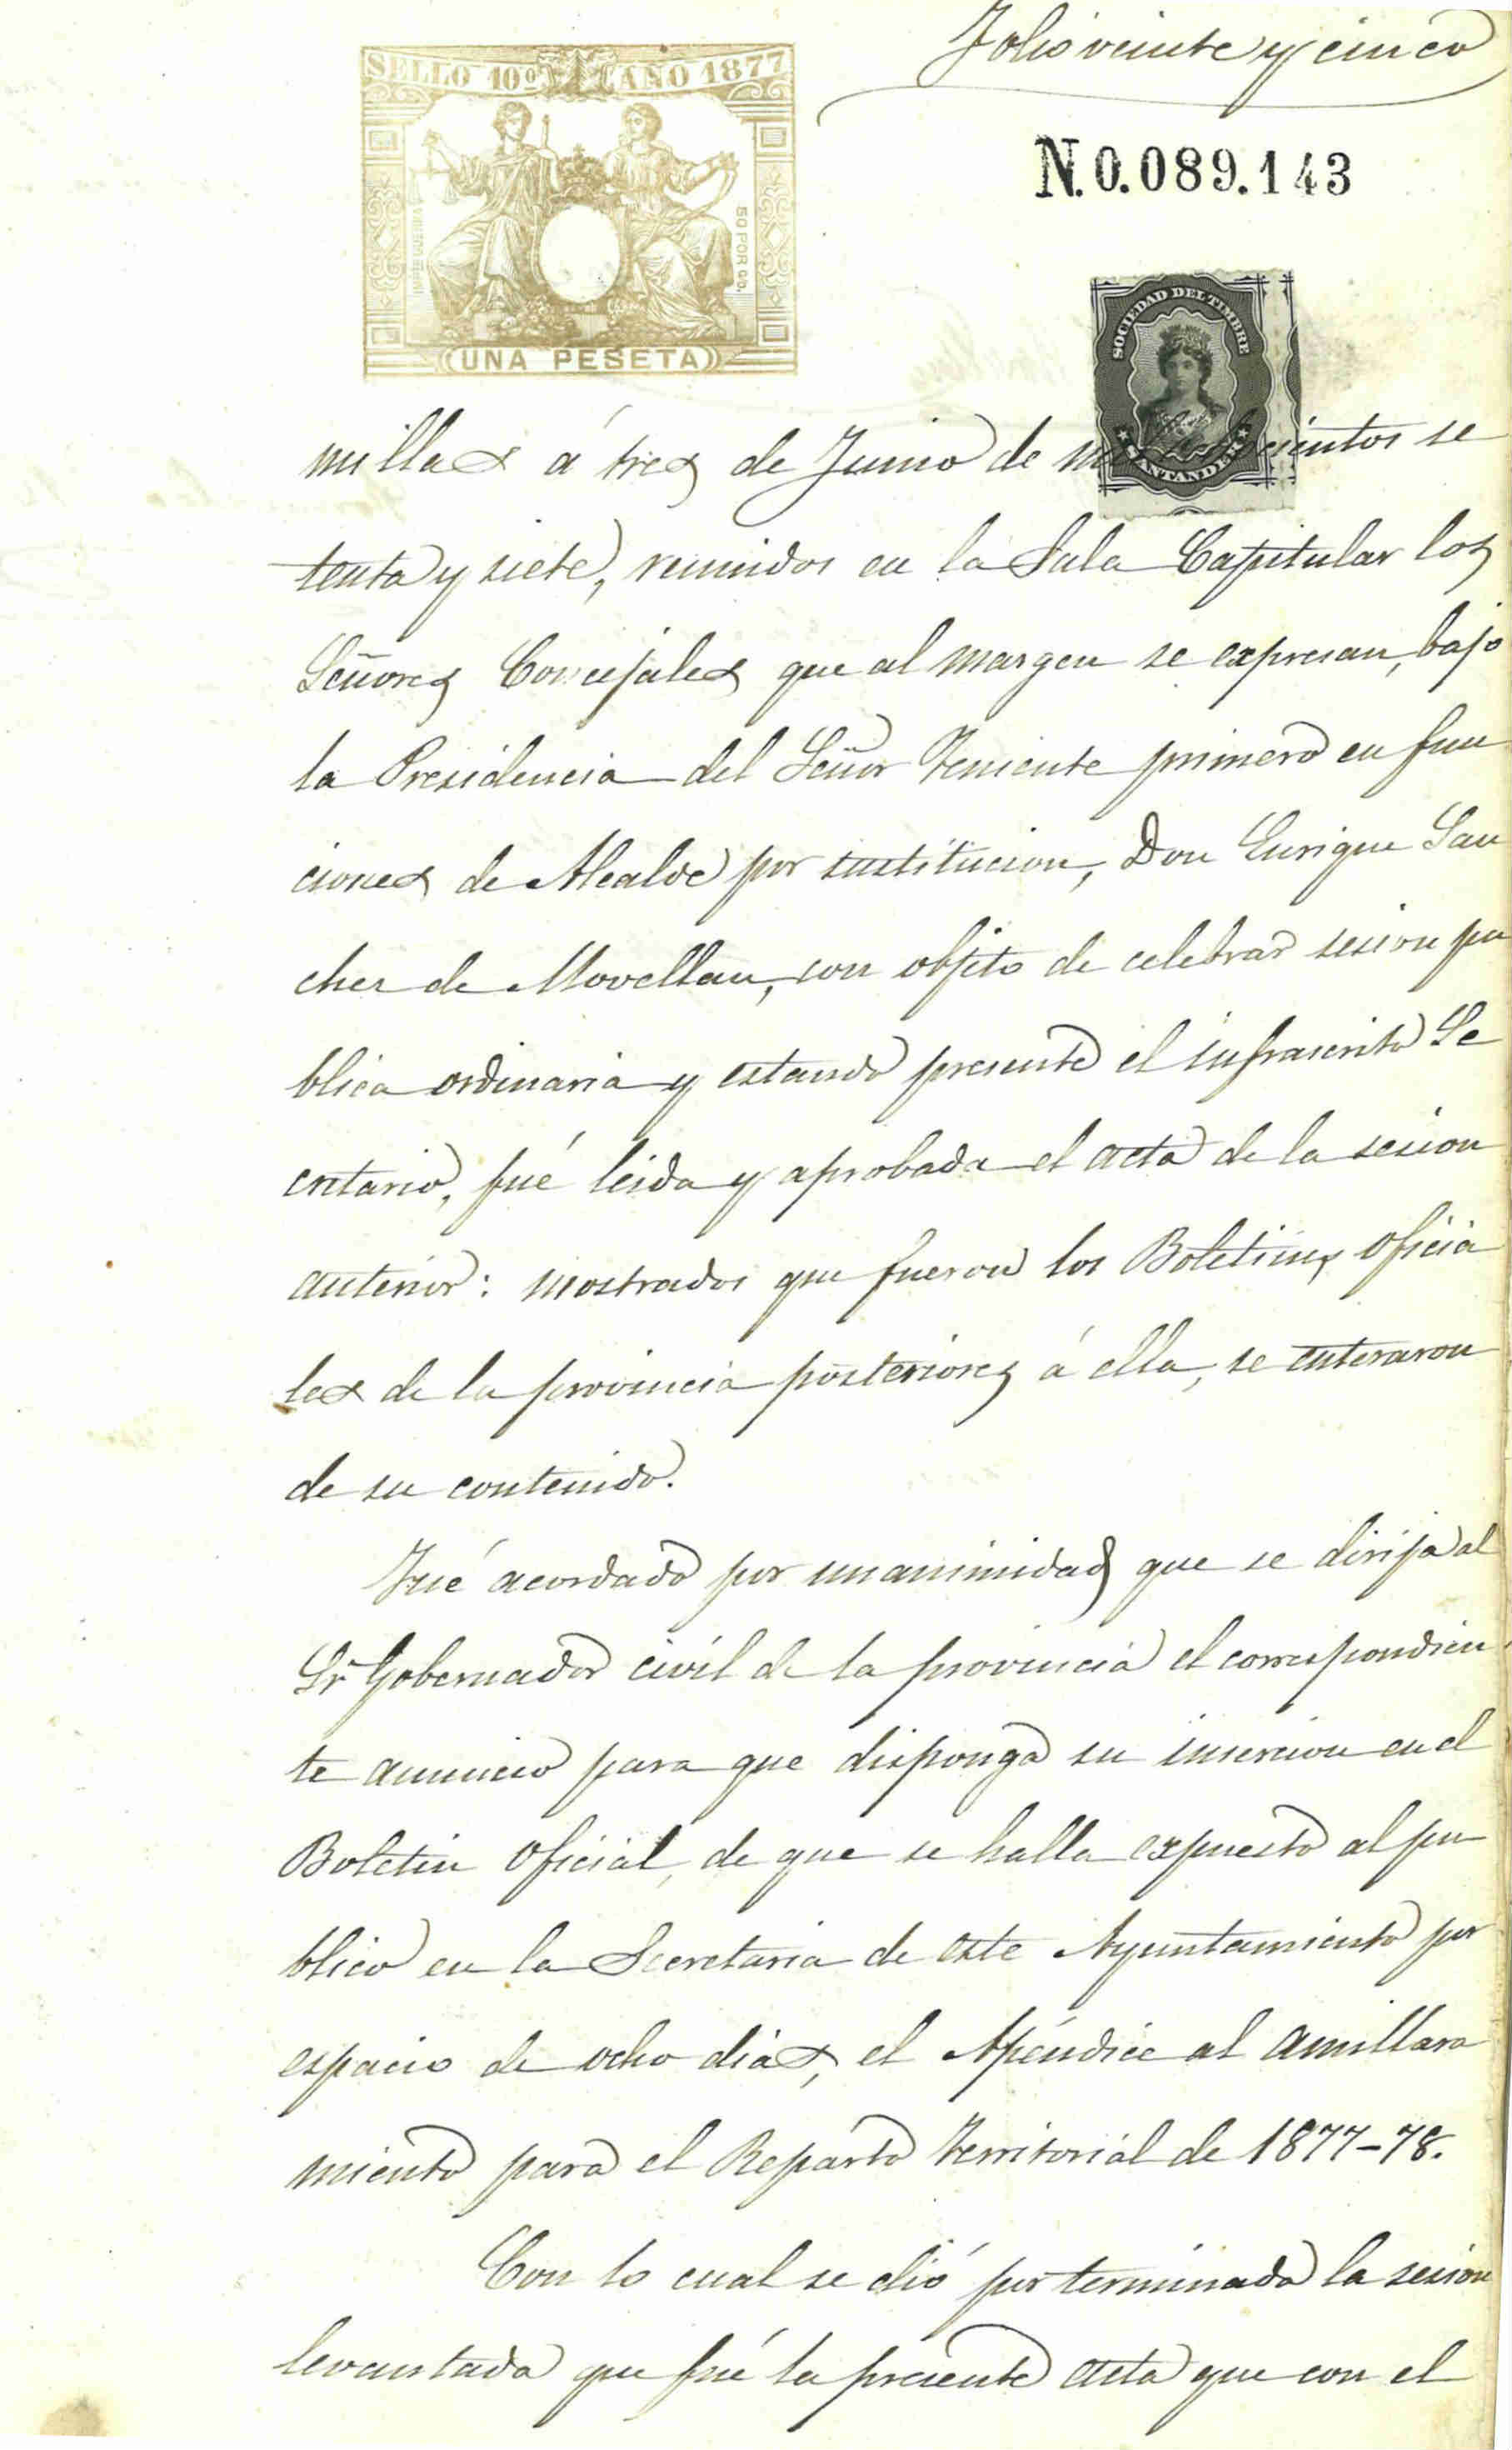 Folio veinte y cinco
SELLO 10º AÑO 1877
N.0.089.143
50 POR 0/0.
UNA PESETA
SOCIEDAD DEL TIMBRE
SANTANDER
millas á tres de Junio de mil ochocientos se
tenta y siete, reunidos en la Sala Capitular los
Señores Concejales que al margen se expresan, bajo
la Presidencia del Señor Teniente primero en fun
ciones de Alcalde por sustitucion, Don Enrique San
chez de Movellan, con objeto de celebrar sesion pu
blica ordinaria y estando presente el infrascrito Se
cretario, fué leida y aprobada el acta de la sesion
anterior: mostrados que fueron los Boletines oficia
les de la provincia posteriores á ella, se enteraron
de su contenido.
Fué acordado por unanimidad que se dirija al
Sr Gobernador civil de la provincia el correspondien
te anuncio para que disponga su insercion en el
Boletin oficial, de que se halla expuesto al pu
blico en la Secretaria de este Ayuntamiento por
espacio de ocho dias, el Apéndice al amillara
miento para el Reparto Territorial de 1877-78.
Con lo cual se dió por terminada la sesion
levantada que fué la presente acta que con el